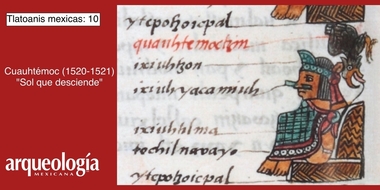 Tlatoanis mexicas: 10
Cuauhtémoc (1520-1521)
"Sol que desciende"
arqueología
MEXICANA
ytepotzoicpal
quauhtemoctzin
ixiuhtzon
ixiuhyacamiuh
ixiuhtilma
tochilnavayo
ytepotzoicpal